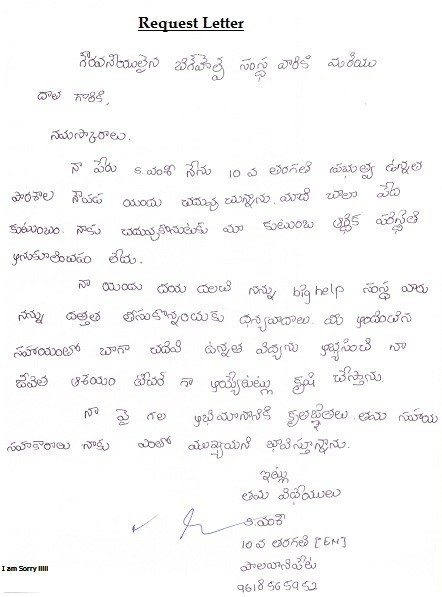 Request Letter
గౌరవనీయులైన బిగ్‌హెల్ప్ సంస్థ వారికి మరియు
దాత గారికి,
నమస్కారాలు.
నా పేరు కె.వంశీ నేను 10 వ తరగతి ప్రభుత్వ ఉన్నత
పాఠశాల నందు చదువు చున్నాను. మాది చాలా పేద
కుటుంబం. నాకు చదువుకొనుటకు మా కుటుంబ ఆర్థిక పరిస్థితి
అనుకూలించుట లేదు.
నా యందు దయ దలచి నన్ను big help సంస్థ వారు
నన్ను దత్తత తీసుకొన్నందుకు ధన్యవాదాలు. మీ అందించిన
సహాయంతో బాగా చదివి ఉన్నత విద్యను అభ్యసించి నా
జీవిత ఆశయం టీచర్ గా అయ్యేటట్లు కృషి చేస్తాను.
నా పై గల అభిమానానికి కృతజ్ఞతలు. తమ సహాయ
సహకారాలు నాకు ఎంతో ముఖ్యమని భావిస్తున్నాను.
ఇట్లు
తమ విధేయులు
కె.వంశీ
10 వ తరగతి [EM]
I am Sorry lllll
9618565952